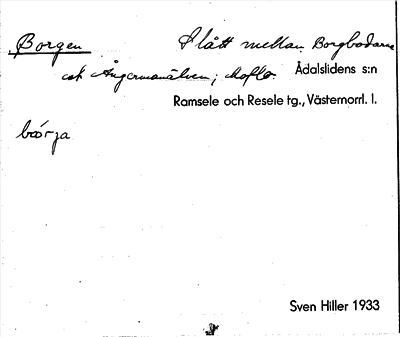 Borgen Slått mellan Borgbodarne
och Ångermanälven; Ådalslidens s:n
Ramsele och Resele tg., Västernorrl. l.
Sven Hiller 1933